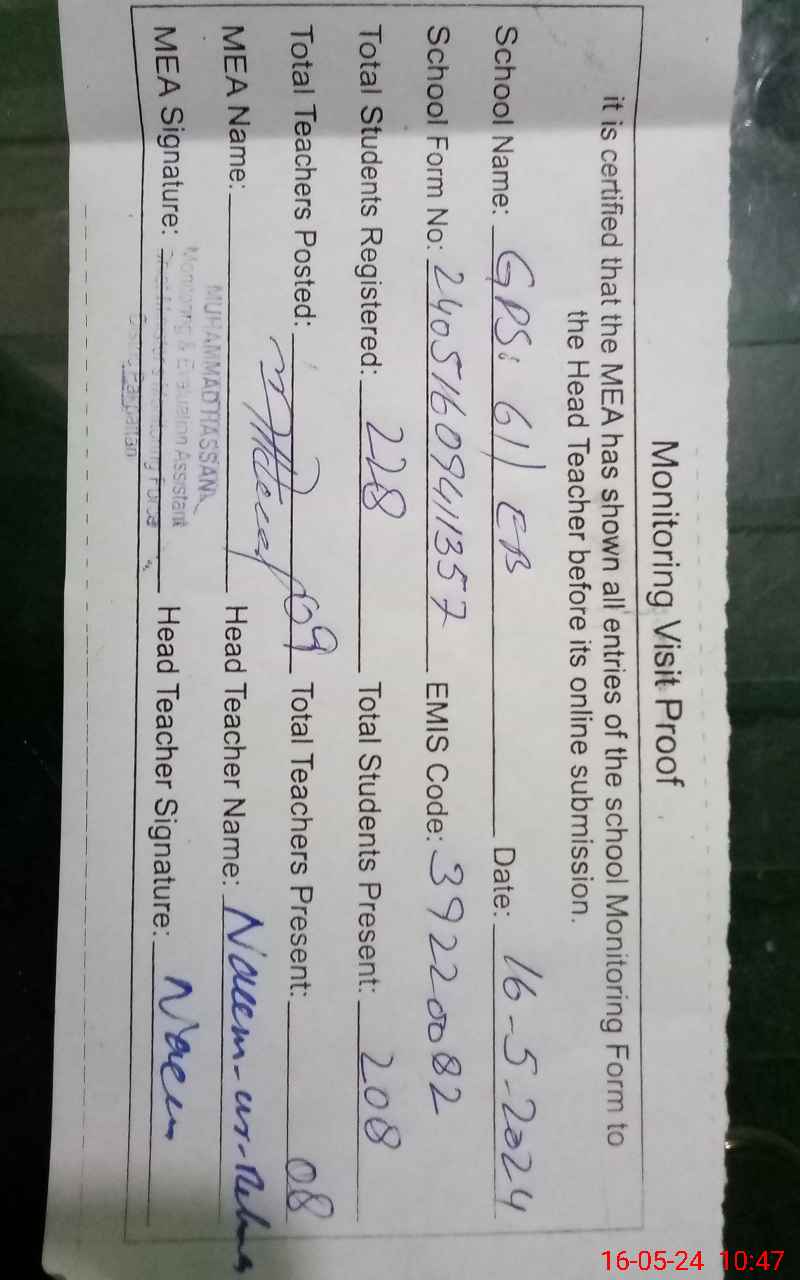 Monitoring Visit Proof
it is certified that the MEA has shown all entries of the school Monitoring Form to
the Head Teacher before its online submission.
School Name: GPS: 61/EB Date: 16-5-2024
School Form No: 24051609411357 EMIS Code: 39220082
Total Students Registered: 228 Total Students Present: 208
Total Teachers Posted: 09 Total Teachers Present: 08
MEA Name: Head Teacher Name: Naeem-ur-Rehman
MUHAMMAD HASSAN
Monitoring & Evaluation Assistant
MEA Signature: Head Teacher Signature: Naeem
Chief Minister's Monitoring Force
Distt. Pakpattan
16-05-24 10:47